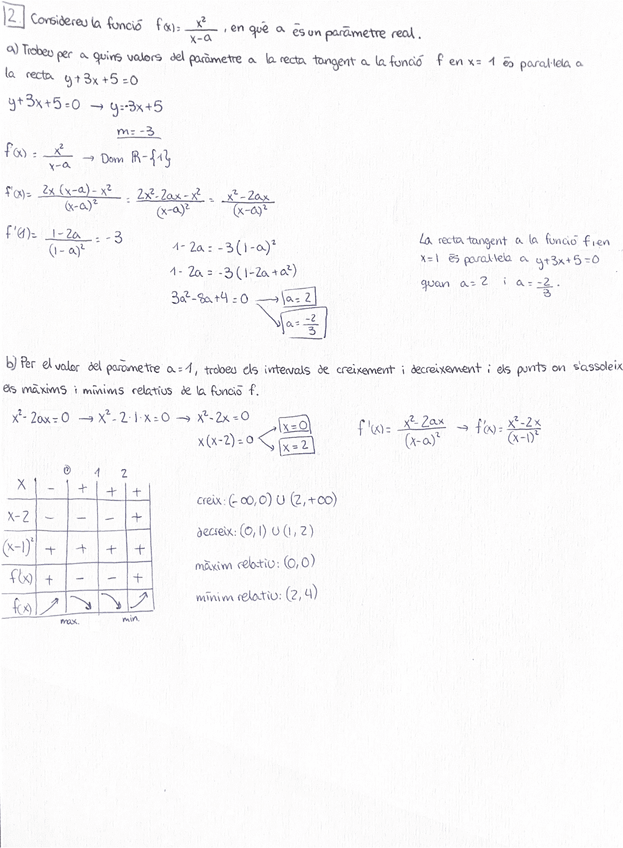 2 Considereu la funció f(x)= x²/(x-a), en què a és un paràmetre real.
a) Trobeu per a quins valors del paràmetre a la recta tangent a la funció f en x=1 és paral·lela a
la recta y+3x+5=0
y+3x+5=0 → y=-3x+5
m=-3
f(x) = x²/(x-a) → Dom ℝ-{1}
f'(x)= (2x(x-a)-x²)/(x-a)² = (2x²-2ax-x²)/(x-a)² = (x²-2ax)/(x-a)²
f'(1)= (1-2a)/(1-a)² = -3
1-2a = -3(1-a)²
1-2a = -3(1-2a+a²)
3a²-8a+4=0 → a=2
a= -2/3
La recta tangent a la funció f en
x=1 és paral·lela a y+3x+5=0
quan a=2 i a= -2/3.
b) Per el valor del paràmetre a=1, trobeu els intervals de creixement i decreixement i els punts on s'assoleixen
els màxims i mínims relatius de la funció f.
x²-2ax=0 → x²-2·1·x=0 → x²-2x=0
x(x-2)=0
x=0
x=2
f'(x)= (x²-2ax)/(x-a)² → f'(x)= (x²-2x)/(x-1)²
0 1 2
x - + + +
x-2 - - - +
(x-1)² + + + +
f'(x) + - - +
f(x) ↗ ↘ ↘ ↗
max. min.
creix: (-∞,0) ∪ (2,+∞)
decreix: (0,1) ∪ (1,2)
màxim relatiu: (0,0)
mínim relatiu: (2,4)